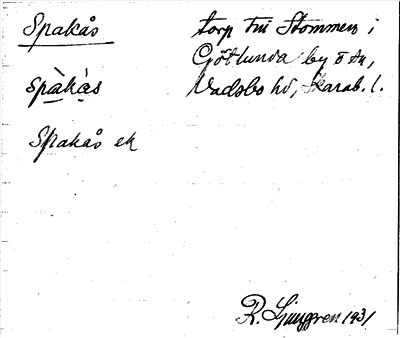 Spakås
torp till Stommen i
Götlunda by o. sn,
spàkà̱s
Vadsbo hd, Skarab. l.
Spakås ek
R. Ljunggren 1931